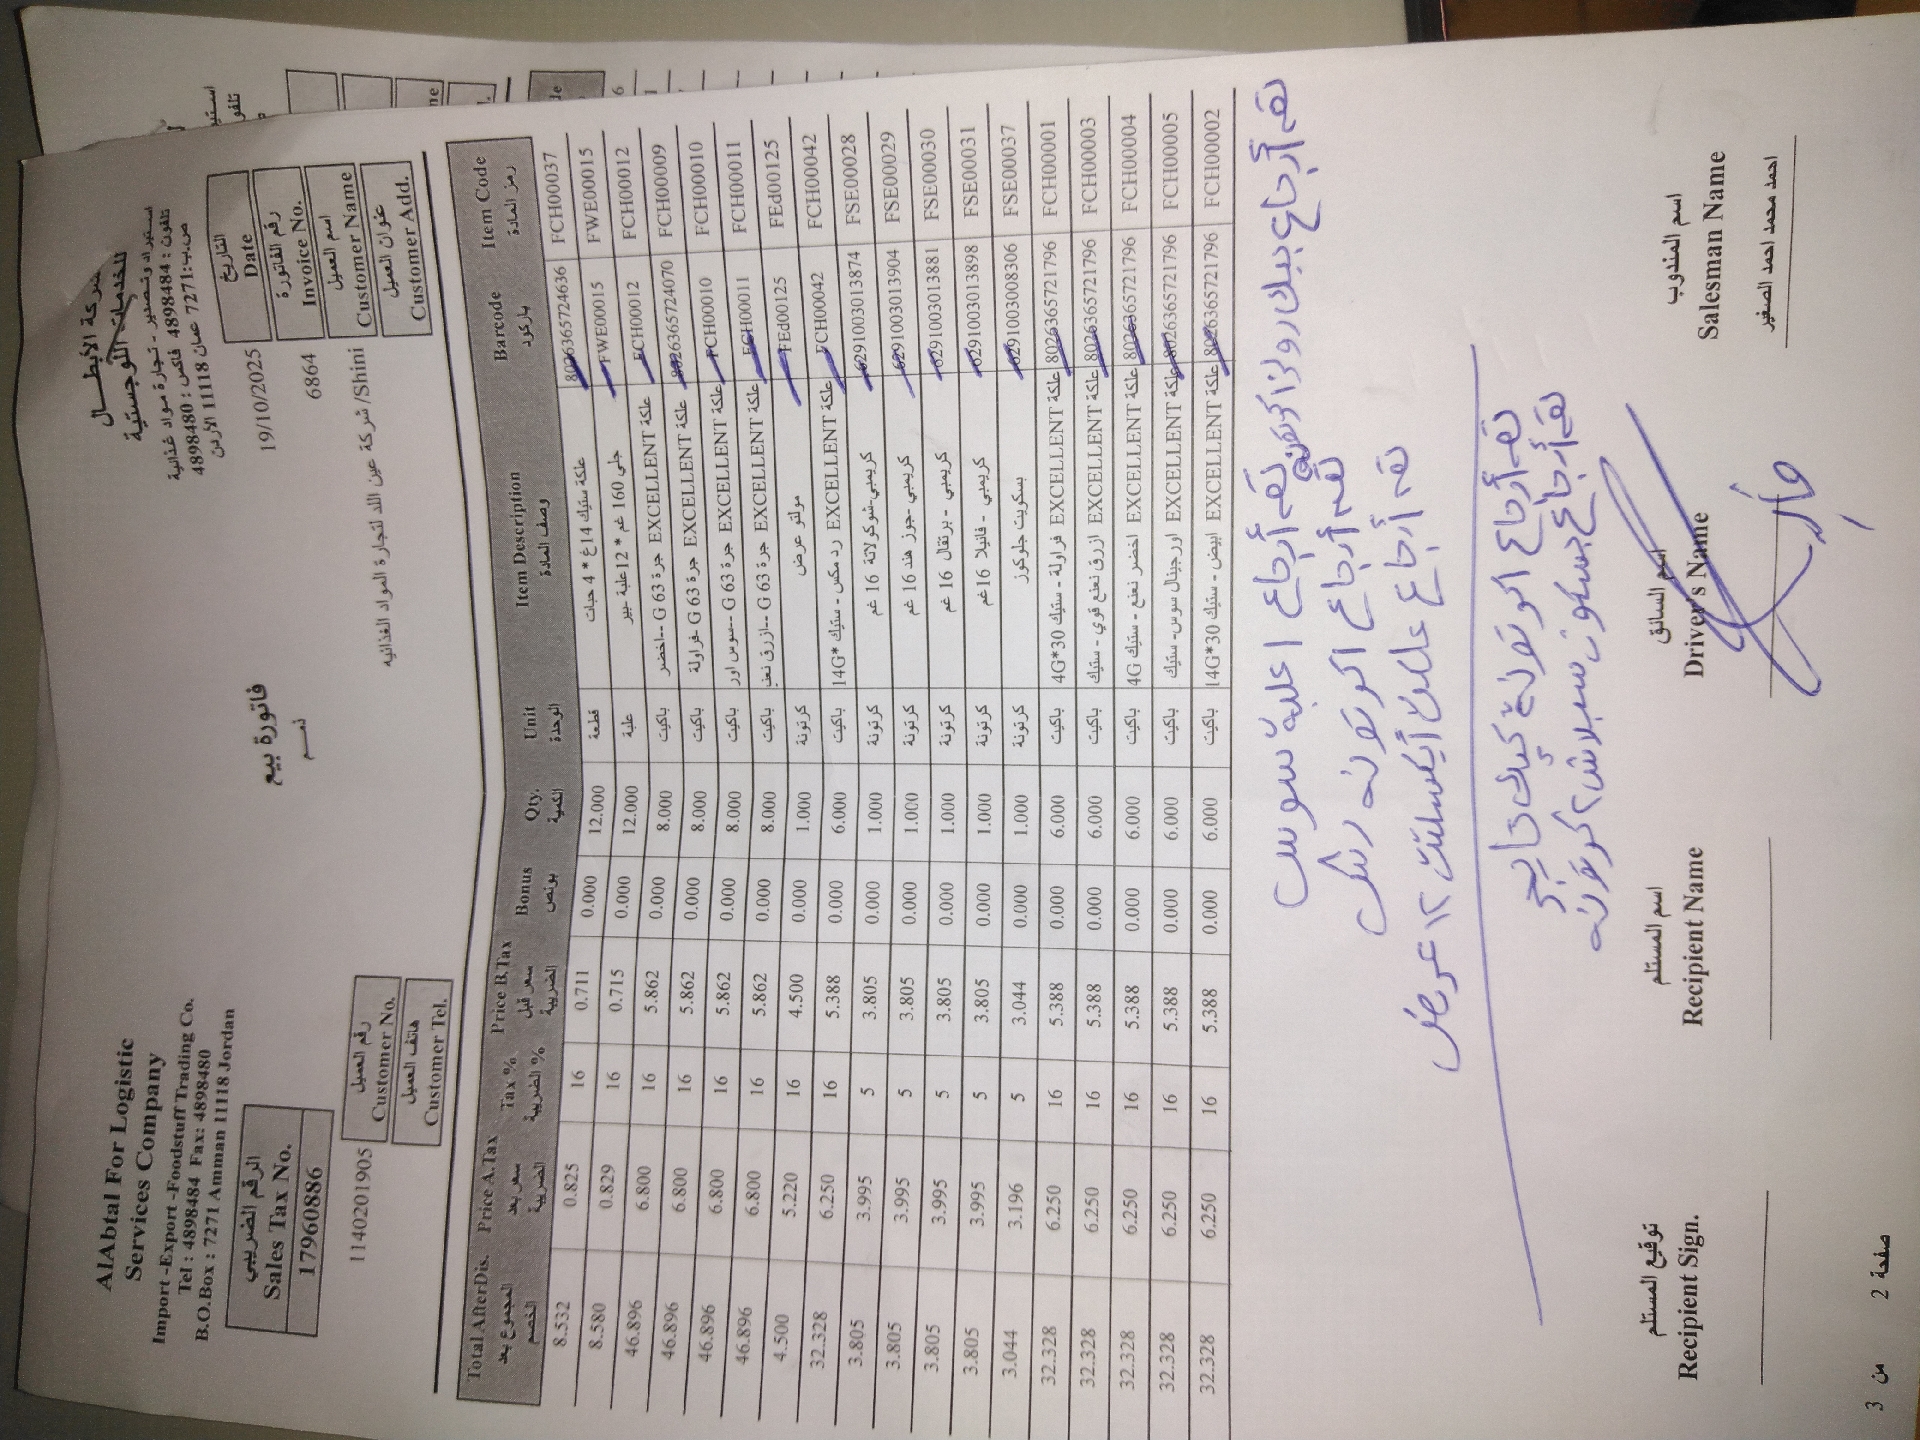 AlAbtal For Logistic
Services Company
Import -Export -Foodstuff Trading Co.
Tel : 4898484 Fax: 4898480
B.O.Box : 7271 Amman 11118 Jordan
شركة الأبطــال
للخدمات اللوجستية
استيراد وتصدير - تجارة مواد غذائية
تلفون : 4898484 فاكس : 4898480
ص.ب:7271 عمان 11118 الأردن
الرقم الضريبي
Sales Tax No.
17960886
فاتورة بيع
ذمم
19/10/2025 التاريخ Date
6864 رقم الفاتورة Invoice No.
شركة عين اللد لتجارة المواد الغذائيه/Shini اسم العميل Customer Name
عنوان العميل Customer Add.
1140201905 رقم العميل Customer No.
هاتف العميل Customer Tel.
Total AfterDis. Price A.Tax Tax % Price B.Tax Bonus Qty. Unit Item Description Barcode Item Code
المجموع بعد الخصم سعر بعد الضريبة الضريبة % سعر قبل الضريبة بونص الكمية الوحدة وصف المادة باركود رمز المادة
8.532 0.825 16 0.711 0.000 12.000 قطعة علكة ستيك 14غ * 4 حبات 8026365724636 FCH00037
8.580 0.829 16 0.715 0.000 12.000 علبة جلي 160 غم * 12علبة -بير FWE00015 FWE00015
46.896 6.800 16 5.862 0.000 8.000 باكيت علكة EXCELLENT جرة 63 G --اخضر FCH00012 FCH00012
46.896 6.800 16 5.862 0.000 8.000 باكيت علكة EXCELLENT جرة 63 G -فراولة 8026365724070 FCH00009
46.896 6.800 16 5.862 0.000 8.000 باكيت علكة EXCELLENT جرة 63 G --سوس اور FCH00010 FCH00010
46.896 6.800 16 5.862 0.000 8.000 باكيت علكة EXCELLENT جرة 63 G --ازرق نعن FCH00011 FCH00011
4.500 5.220 16 4.500 0.000 1.000 كرتونة مولتو عرض FEd00125 FEd00125
32.328 6.250 16 5.388 0.000 6.000 باكيت علكة EXCELLENT رد مكس - ستيك *14G FCH00042 FCH00042
3.805 3.995 5 3.805 0.000 1.000 كرتونة كريمبي-شوكولاتة 16 غم 6291003013874 FSE00028
3.805 3.995 5 3.805 0.000 1.000 كرتونة كريمبي -جوز هند 16 غم 6291003013904 FSE00029
3.805 3.995 5 3.805 0.000 1.000 كرتونة كريمبي - برتقال 16 غم 6291003013881 FSE00030
3.805 3.995 5 3.805 0.000 1.000 كرتونة كريمبي - فانيلا 16 غم 6291003013898 FSE00031
3.044 3.196 5 3.044 0.000 1.000 كرتونة بسكويت جلوكوز 6291003008306 FSE00037
32.328 6.250 16 5.388 0.000 6.000 باكيت علكة EXCELLENT فراولة - ستيك 30*4G 8026365721796 FCH00001
32.328 6.250 16 5.388 0.000 6.000 باكيت علكة EXCELLENT ازرق نعنع قوي - ستيك 8026365721796 FCH00003
32.328 6.250 16 5.388 0.000 6.000 باكيت علكة EXCELLENT اخضر نعنع - ستيك 4G 8026365721796 FCH00004
32.328 6.250 16 5.388 0.000 6.000 باكيت علكة EXCELLENT اورجينال سوس- ستيك 8026365721796 FCH00005
32.328 6.250 16 5.388 0.000 6.000 باكيت علكة EXCELLENT ابيض - ستيك 30*14G 8026365721796 FCH00002
أرجاع
أرجاع ١ علبة سوس
أرجاع ١ كرتونه
أرجاع علكة أيكسلنت ١٢ عرض
أرجاع ١ كرتونة كيك
أرجاع بسكوت سبلاش ٢ كرتونه
اسم المندوب
Salesman Name
احمد محمد احمد الصغير
اسم السائق
Driver's Name
اسم المستلم
Recipient Name
توقيع المستلم
Recipient Sign.
صفحة 2 من 3